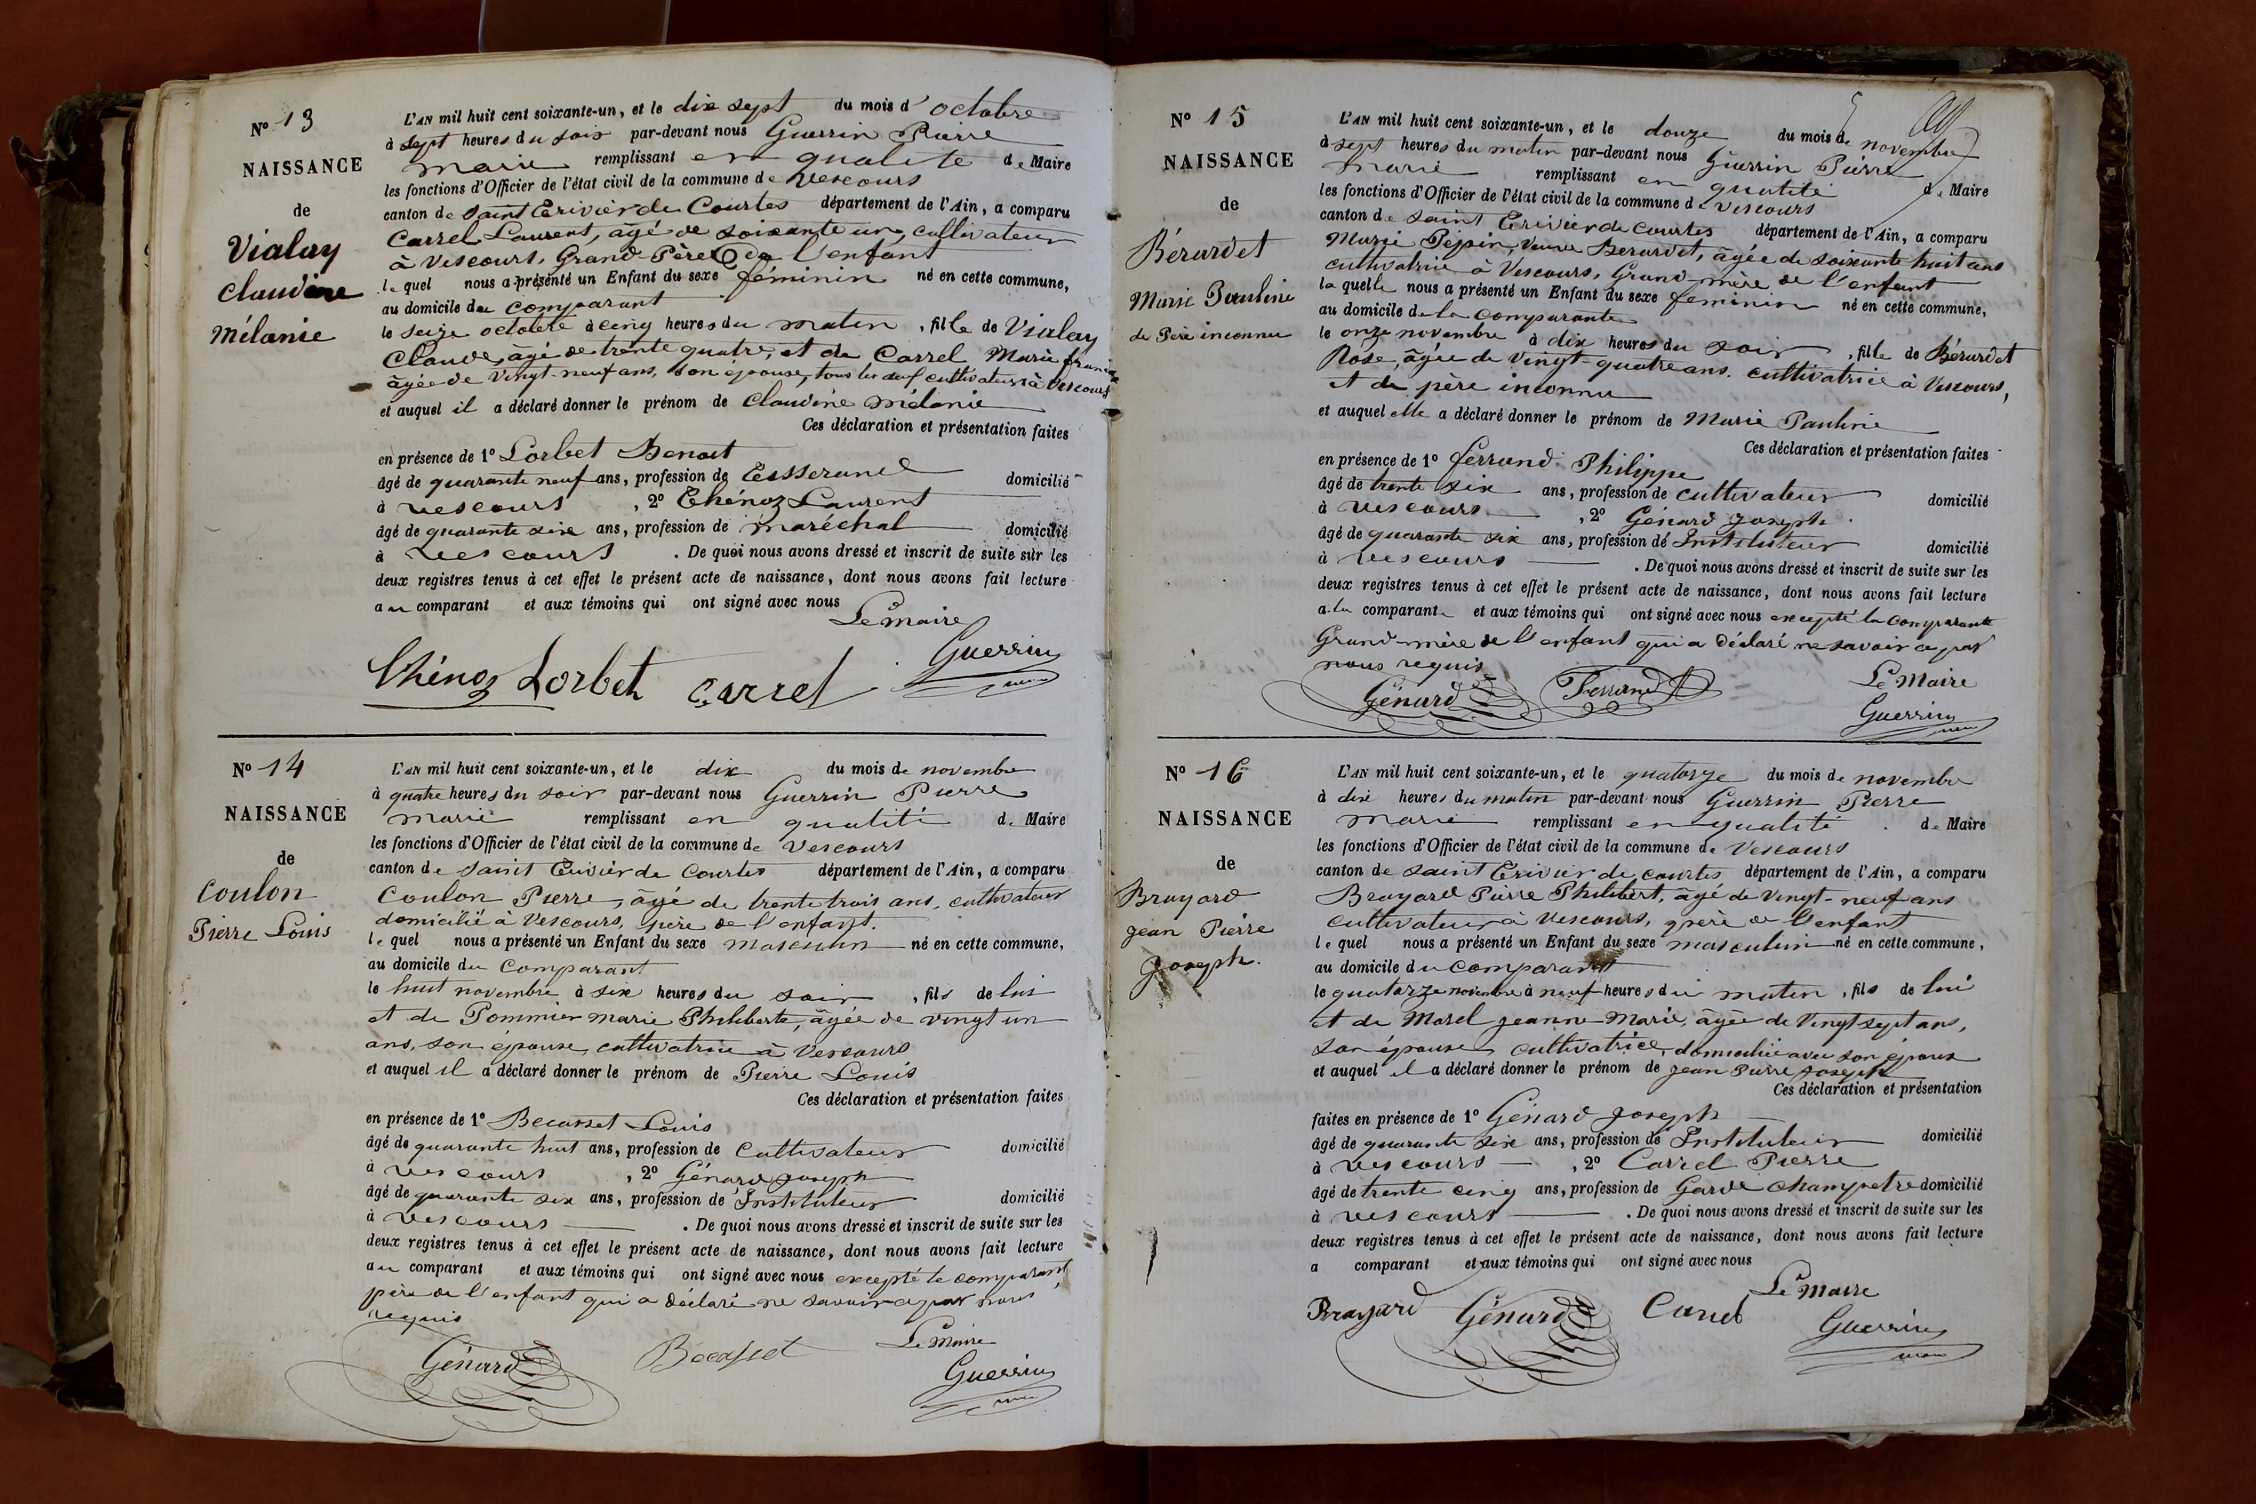 N° 13
NAISSANCE
de
Vialay
Claudine
Mélanie
L'AN mil huit cent soixante-un, et le dix sept du mois d' octobre
à sept heures du soir par-devant nous Guerrin Pierre
marie remplissant en qualité de Maire
les fonctions d'Officier de l'état civil de la commune de Vescours
canton de Saint Trivier de Courtes département de l'Ain, a comparu
Carrel Laurent, agé de soixante un, cultivateur
à Vescours, Grand Père de l'enfant
le quel nous a présenté un Enfant du sexe féminin né en cette commune,
au domicile du comparant
le seize octobre à cinq heures du matin, fille de Vialay
Claude, âgé de trente quatre, et de Carrel Marie
âgée de vingt-neuf ans, son épouse, tous les deux cultivateurs à Vescours
et auquel il a déclaré donner le prénom de Claudine Mélanie
Ces déclaration et présentation faites
en présence de 1° Lorbet Benoit
âgé de quarante neuf ans, profession de Tisserand domicilié
à Vescours, 2° Thénoz Laurent
âgé de quarante six ans, profession de maréchal domicilié
à Vescours. De quoi nous avons dressé et inscrit de suite sur les
deux registres tenus à cet effet le présent acte de naissance, dont nous avons fait lecture
au comparant et aux témoins qui ont signé avec nous
Le maire
Thénoz Lorbet Carrel Guerrin
N° 14
NAISSANCE
de
Coulon
Pierre Louis
L'AN mil huit cent soixante-un, et le dix du mois de novembre
à quatre heures du soir par-devant nous Guerrin Pierre
marie remplissant en qualité de Maire
les fonctions d'Officier de l'état civil de la commune de Vescours
canton de Saint Trivier de Courtes département de l'Ain, a comparu
Coulon Pierre, âgé de trente trois ans, cultivateur
domicilié à Vescours, père de l'enfant.
le quel nous a présenté un Enfant du sexe masculin né en cette commune,
au domicile du comparant
le huit novembre à six heures du soir, fils de lui
et de Pommier marie Philiberte, âgée de vingt un
ans, son épouse, cultivatrice à Vescours
et auquel il a déclaré donner le prénom de Pierre Louis
Ces déclaration et présentation faites
en présence de 1° Becasset Louis
âgé de quarante huit ans, profession de cultivateur domicilié
à Vescours, 2° Génard Joseph
âgé de quarante six ans, profession de Instituteur domicilié
à Vescours. De quoi nous avons dressé et inscrit de suite sur les
deux registres tenus à cet effet le présent acte de naissance, dont nous avons fait lecture
au comparant et aux témoins qui ont signé avec nous excepté le comparant
père de l'enfant qui a déclaré ne savoir ce par nous
requis
Le Maire
Génard Becasset Guerrin
N° 15
NAISSANCE
de
Bérardet
Marie Pauline
de Père inconnu
L'AN mil huit cent soixante-un, et le douze du mois de novembre
à sept heures du matin par-devant nous Guerrin Pierre
marie remplissant en qualité de Maire
les fonctions d'Officier de l'état civil de la commune de Vescours
canton de Saint Trivier de Courtes département de l'Ain, a comparu
Marie Pépin, Veuve Berardet, âgée de soixante huit ans
cultivatrice à Vescours, Grand-mère de l'enfant
la quelle nous a présenté un Enfant du sexe féminin né en cette commune,
au domicile de la comparante
le onze novembre à dix heures du soir, fille de Bérardet
Rose, âgée de vingt-quatre ans. cultivatrice à Vescours,
et de père inconnu
et auquel elle a déclaré donner le prénom de Marie Pauline
Ces déclaration et présentation faites
en présence de 1° Ferrand Philippe
âgé de trente six ans, profession de cultivateur domicilié
à Vescours, 2° Génard Joseph.
âgé de quarante six ans, profession de Instituteur domicilié
à Vescours. De quoi nous avons dressé et inscrit de suite sur les
deux registres tenus à cet effet le présent acte de naissance, dont nous avons fait lecture
a la comparante et aux témoins qui ont signé avec nous excepté la comparante
Grand-mère de l'enfant qui a déclaré ne savoir ce par
nous requis
Le Maire
Génard Ferrand Guerrin
N° 16
NAISSANCE
de
Brayard
Jean Pierre
Joseph.
L'AN mil huit cent soixante-un, et le quatorze du mois de novembre
à dix heures du matin par-devant nous Guerrin Pierre
marie remplissant en qualité de Maire
les fonctions d'Officier de l'état civil de la commune de Vescours
canton de Saint Trivier de Courtes département de l'Ain, a comparu
Brayard Pierre Philibert, âgé de vingt-neuf ans
cultivateur à Vescours, père de l'enfant
le quel nous a présenté un Enfant du sexe masculin né en cette commune,
au domicile du comparant
le quatorze novembre à neuf heures du matin, fils de lui
et de Morel Jeanne Marie, âgée de vingt sept ans,
son épouse cultivatrice, domiciliée avec son époux
et auquel il a déclaré donner le prénom de Jean Pierre Joseph
Ces déclaration et présentation
faites en présence de 1° Génard Joseph
âgé de quarante six ans, profession de Instituteur domicilié
à Vescours, 2° Carrel Pierre
âgé de trente cinq ans, profession de Garde champetre domicilié
à Vescours. De quoi nous avons dressé et inscrit de suite sur les
deux registres tenus à cet effet le présent acte de naissance, dont nous avons fait lecture
a comparant et aux témoins qui ont signé avec nous
Le Maire
Brayard Génard Carrel Guerrin